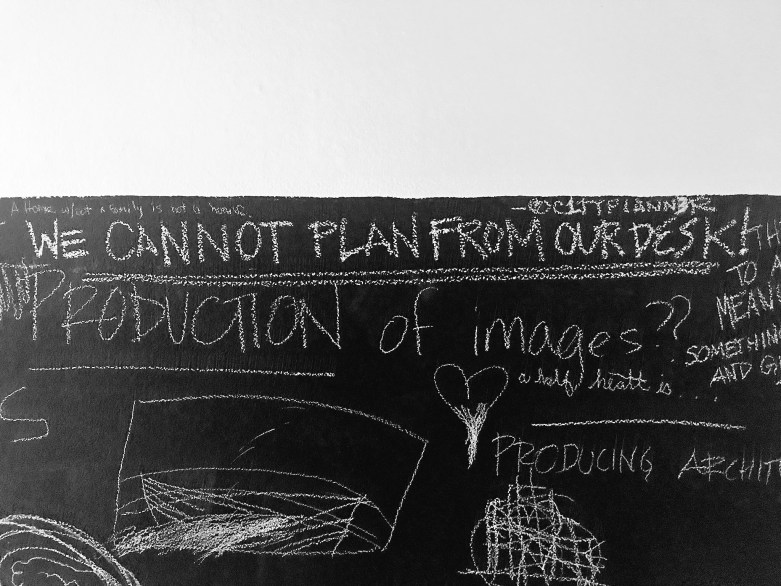 A Home w/out a family is not a home.
- @C1TYPLANN3R
WE CANNOT PLAN FROM OUR DESK!
TO A
PRODUCTION of images??
MEAN
SOMETHIN
AND G
a half heart is....
PRODUCING ARCHIT